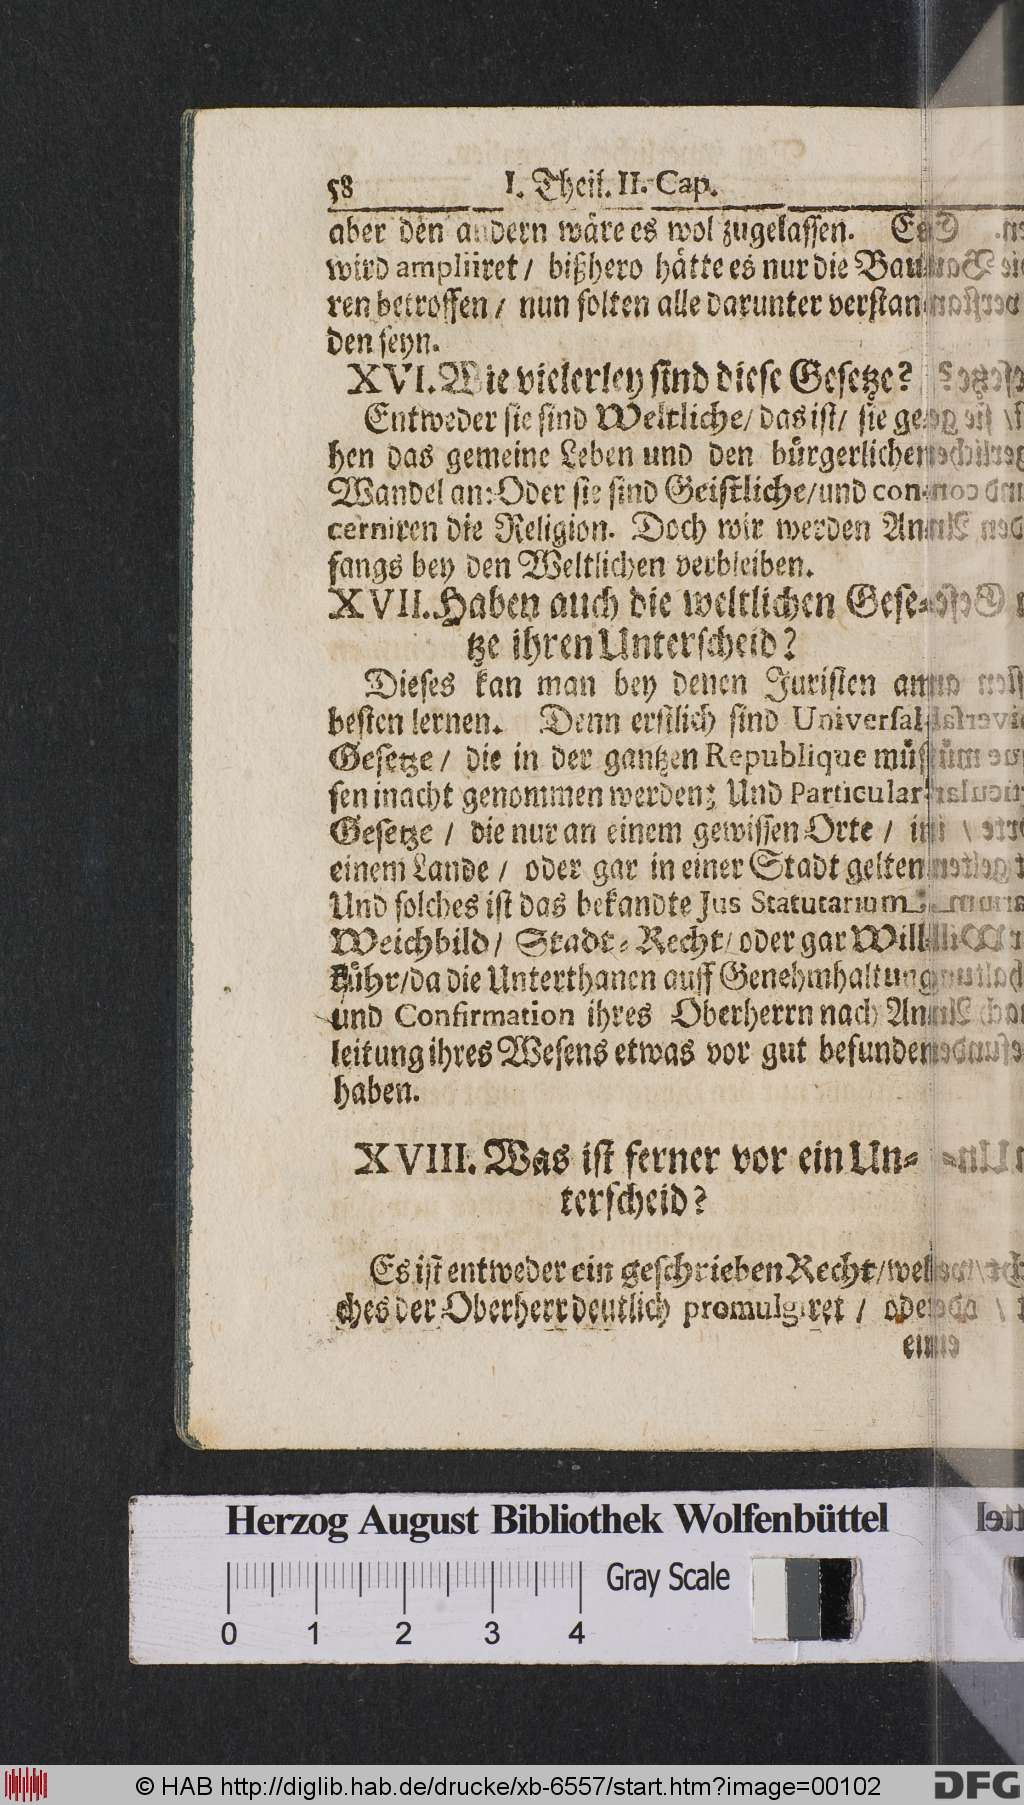 58 I. Theil. II. Cap.
aber den andern wäre es wol zugelassen. Es
wird ampliiret / bißhero hätte es nur die Bau-
ren betroffen / nun solten alle darunter verstan-
den seyn.
XVI. Wie vielerley sind diese Gesetze?
Entweder sie sind Weltliche / das ist / sie ge-
hen das gemeine Leben und den bürgerlichen
Wandel an: Oder sie sind Geistliche / und con-
cerniren die Religion. Doch wir werden An-
fangs bey den Weltlichen verbleiben.
XVII. Haben auch die weltlichen Gese-
tze ihren Unterscheid?
Dieses kan man bey denen Juristen am
besten lernen. Denn erstlich sind Universal-
Gesetze / die in der gantzen Republique müs-
sen inacht genommen werden; Und Particular-
Gesetze / die nur an einem gewissen Orte / in
einem Lande / oder gar in einer Stadt gelten
Und solches ist das bekandte Jus Statutarium
Weichbild / Stadt-Recht / oder gar Will-
kühr / da die Unterthanen auff Genehmhaltung
und Confirmation ihres Oberherrn nach An-
leitung ihres Wesens etwas vor gut befunden
haben.
XVIII. Was ist ferner vor ein Un-
terscheid?
Es ist entweder ein geschrieben Recht / wel-
ches der Oberherr deutlich promulgiret / oder
eine
Herzog August Bibliothek Wolfenbüttel
Gray Scale
0 1 2 3 4
© HAB http://diglib.hab.de/drucke/xb-6557/start.htm?image=00102
DFG